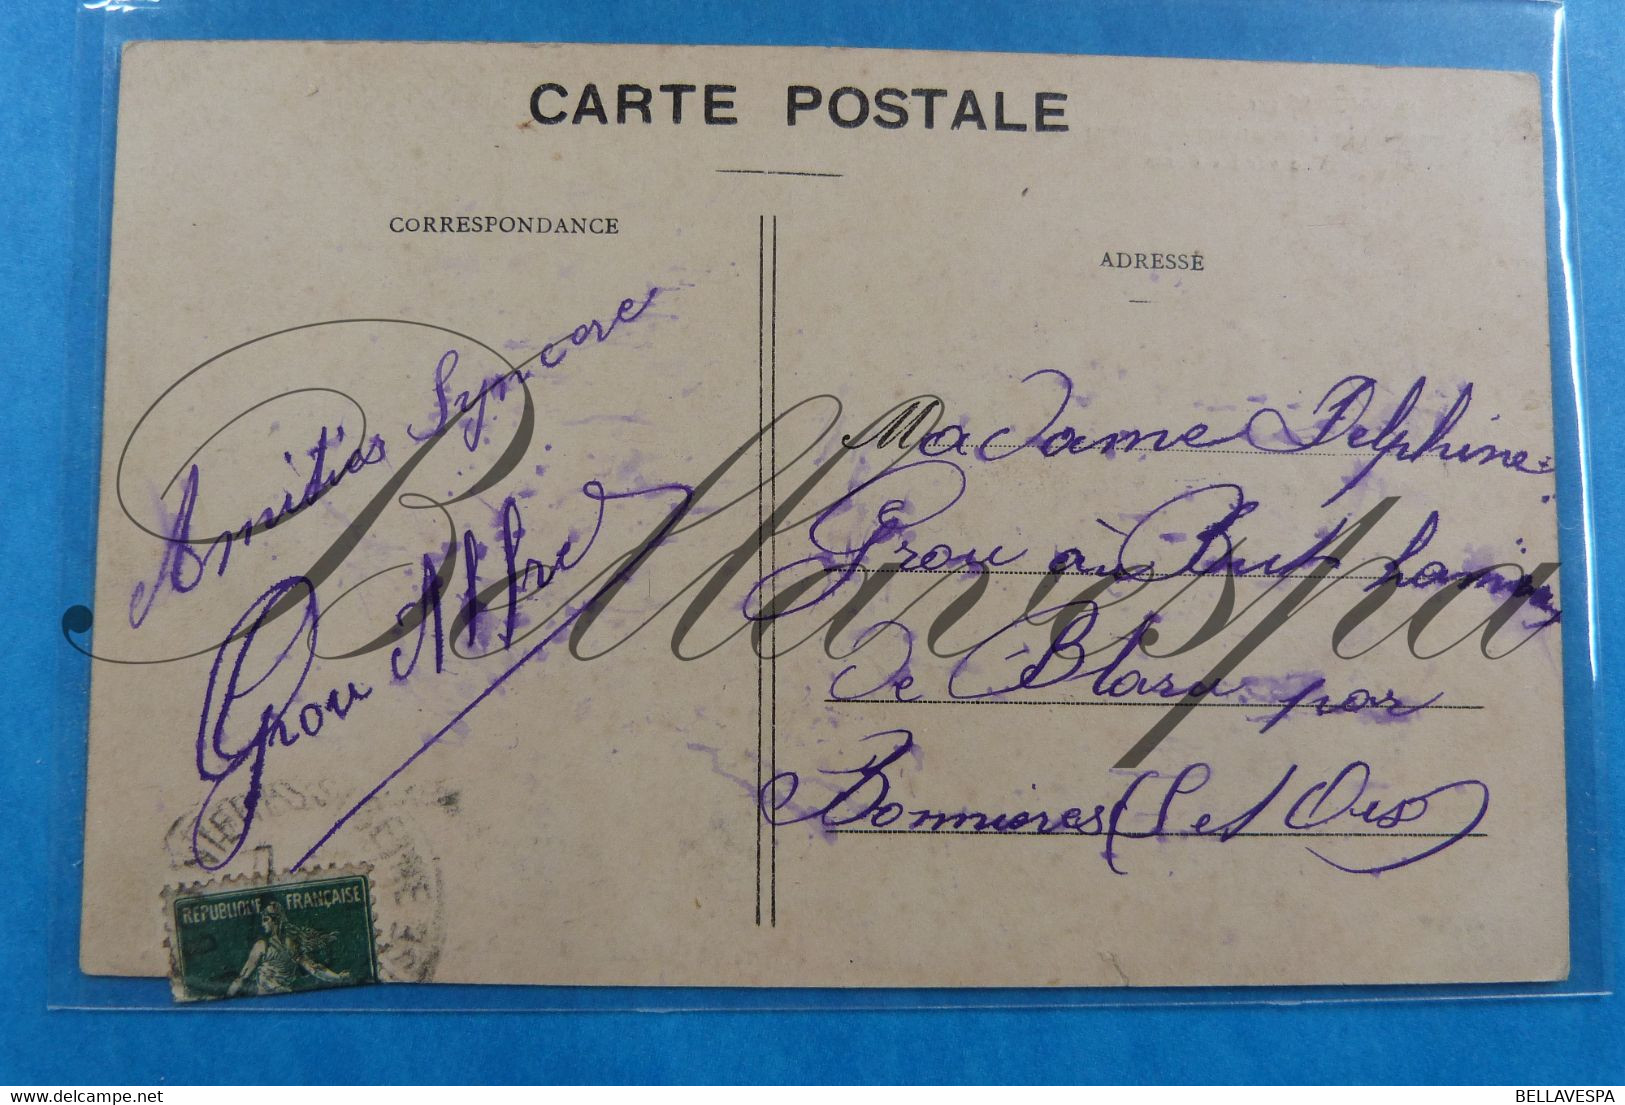 CARTE POSTALE
CORRESPONDANCE
ADRESSE
Amitiés Syncore
Grou Alfre
Madame Delphine
Grou au But
de Blaru par
Bonnières (S et Oise)
REPUBLIQUE FRANÇAISE
Bellavespa
BELLAVESPA
delcampe.net